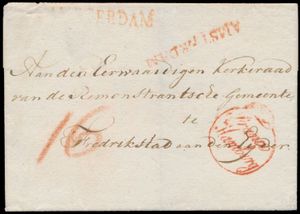 ERDAM
AMSTERDAM
Aan den Eerwaardigen Kerkeraad
van de Remonstrantsche Gemeente
te
16
Fredrikstad aan den Eyder
Hamburg